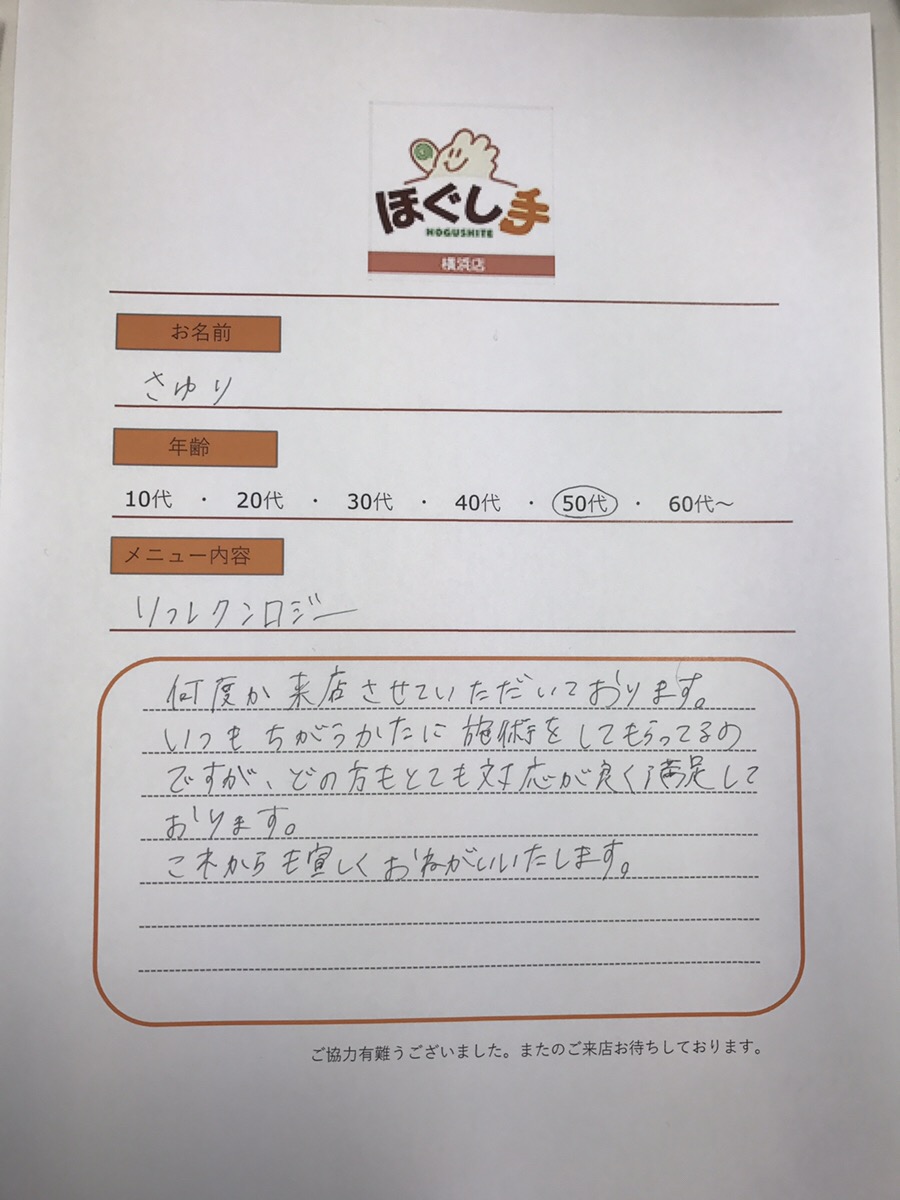 ほぐし手
HOGUSHITE
横浜店
お名前
さゆり
年齢
10代 ・ 20代 ・ 30代 ・ 40代 ・ 50代 ・ 60代～
メニュー内容
リフレクソロジー
何度か来店させていただいております。
いつもちがうかたに施術をしてもらってるの
ですが、どの方もとても対応が良く満足して
おります。
これからも宜しくおねがいいたします。
ご協力有難うございました。またのご来店お待ちしております。